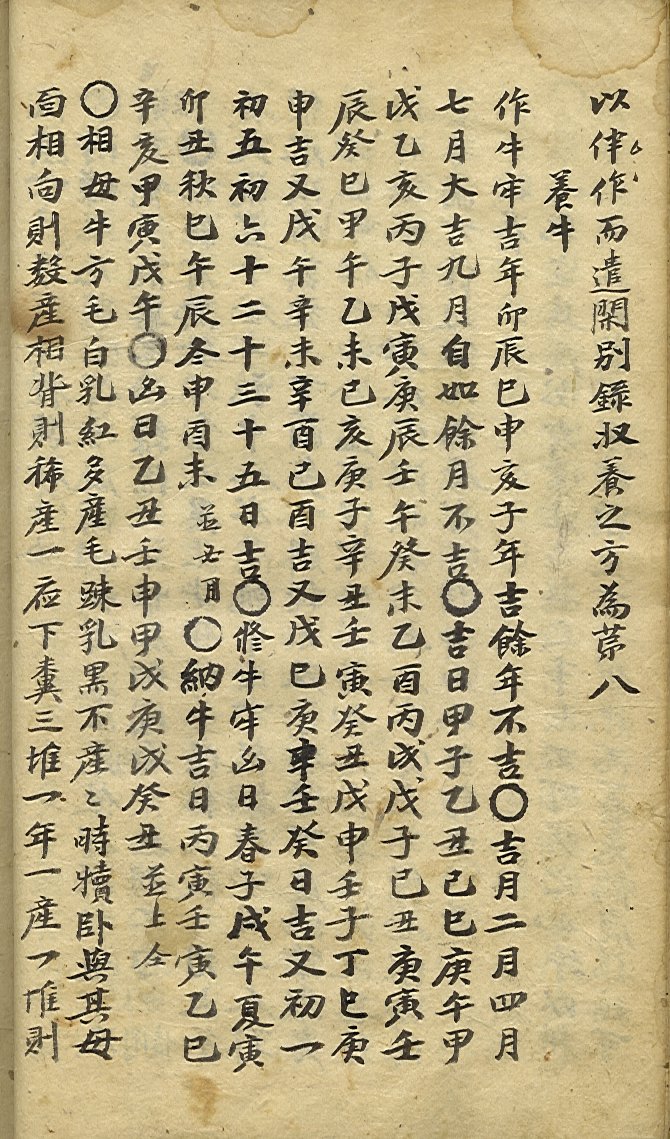 以伴作而遣閑別錄牧養之方為苐八
養牛
作牛牢吉年卯辰巳申亥子年吉餘年不吉〇吉月二月四月
七月大吉九月自如餘月不吉〇吉日甲子乙丑己巳庚午甲
戌乙亥丙子戊寅庚辰壬午癸未乙酉丙戌戊子己丑庚寅壬
辰癸巳甲午乙未己亥庚子辛丑壬寅癸丑戊申壬子丁巳庚
申吉又戊午辛未辛酉己酉吉又戊己庚辛壬癸日吉又初一
初五初六十二十三十五日吉〇修牛牢凶日春子戌午夏寅
卯丑秋巳午辰冬申酉未並丑月〇納牛吉日丙寅壬寅乙巳
辛亥甲寅戊午〇凶日乙丑壬申甲戌庚戌癸丑並上仝
〇相母牛方毛白乳紅多產毛踈乳黑不產〻時犢卧與其母
面相向則数產相背則稀產一夜下糞三堆一年一產一堆則